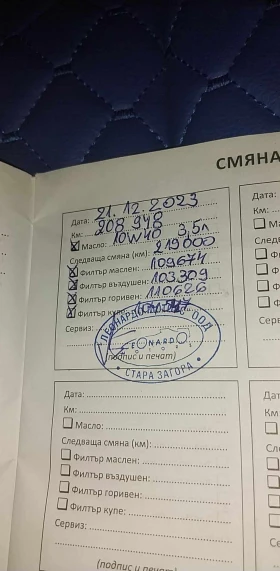 СМЯНА
Дата: 21.12.2023
Км: 208 948
Масло: 10W40 3,5л
Следваща смяна (км): 219000
Филтър маслен: 109674
Филтър въздушен: 103309
Филтър горивен: 110626
Филтър купе:
Сервиз:
ЛЕОНАРДО ООД
LEONARDO
СТАРА ЗАГОРА
(подпис и печат)
Дата:
Км:
Масло:
Следваща смяна (км):
Филтър маслен:
Филтър въздушен:
Филтър горивен:
Филтър купе:
Сервиз:
(подпис и печат)
Дата:
Км:
Дат
Км: